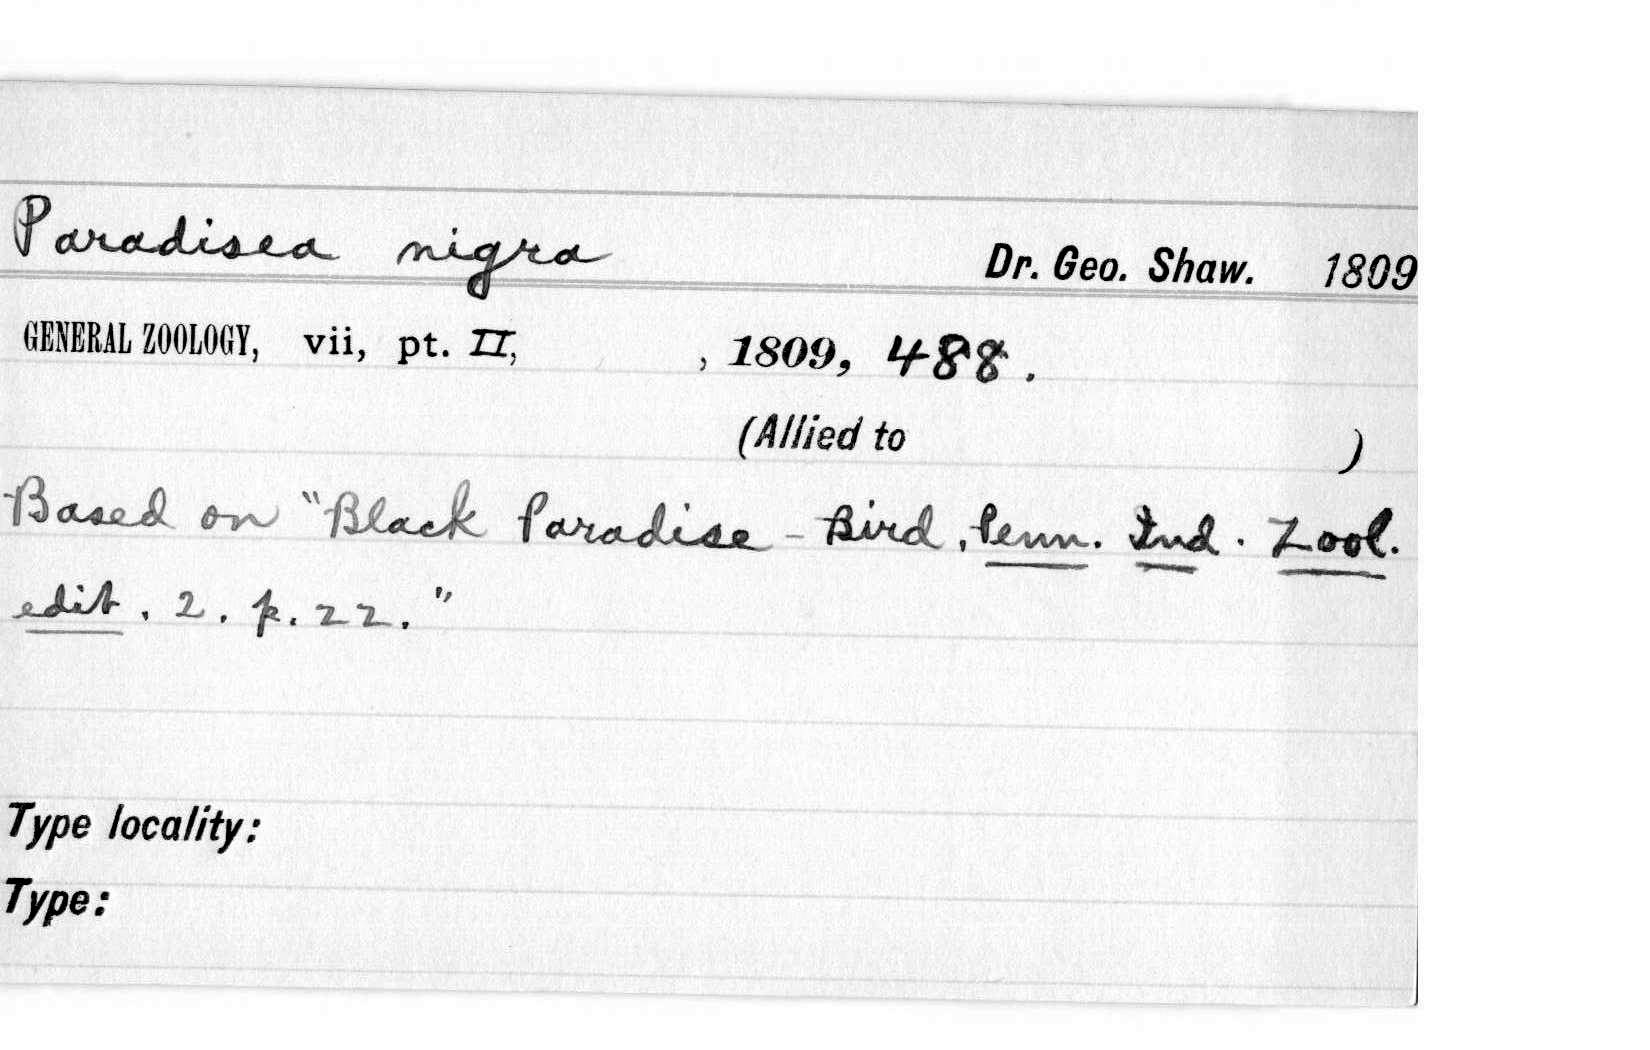 Paradisea nigra Dr. Geo. Shaw. 1809
GENERAL ZOOLOGY, vii, pt. II, , 1809, 488.
(Allied to )
Based on "Black Paradise - Bird, Penn. Ind. Zool.
edit. 2. p. 22."
Type locality:
Type: